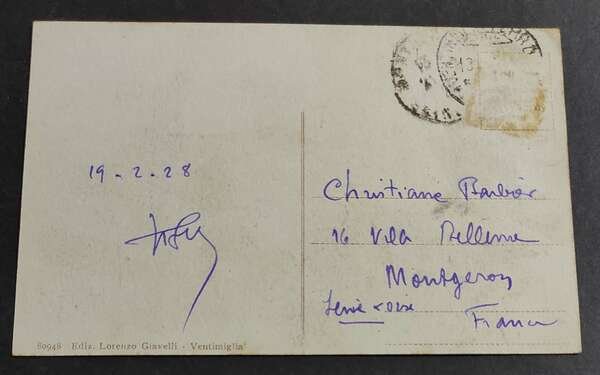 19-2-28
Christiane Barbier
16 Villa Bellevue
Montgeron
Seine & Oise
France
80948 Ediz. Lorenzo Giavelli - Ventimiglia